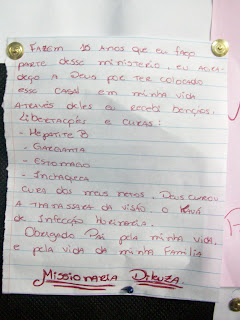 Fazem 10 anos que eu faço
parte desse ministerio, eu agra-
deço a Deus por ter colocado
esse casal em minha vida.
através deles eu recebi bençãos,
Libertações e curas:
- Hepatite B
- Garganta
- Estomago
- Inchaqueca
cura dos meus netos. Deus curou
a thatassara da visão. o
de infecção
Obrigado Pai pela minha vida,
e pela vida da minha familia
Missionaria Dileuza.